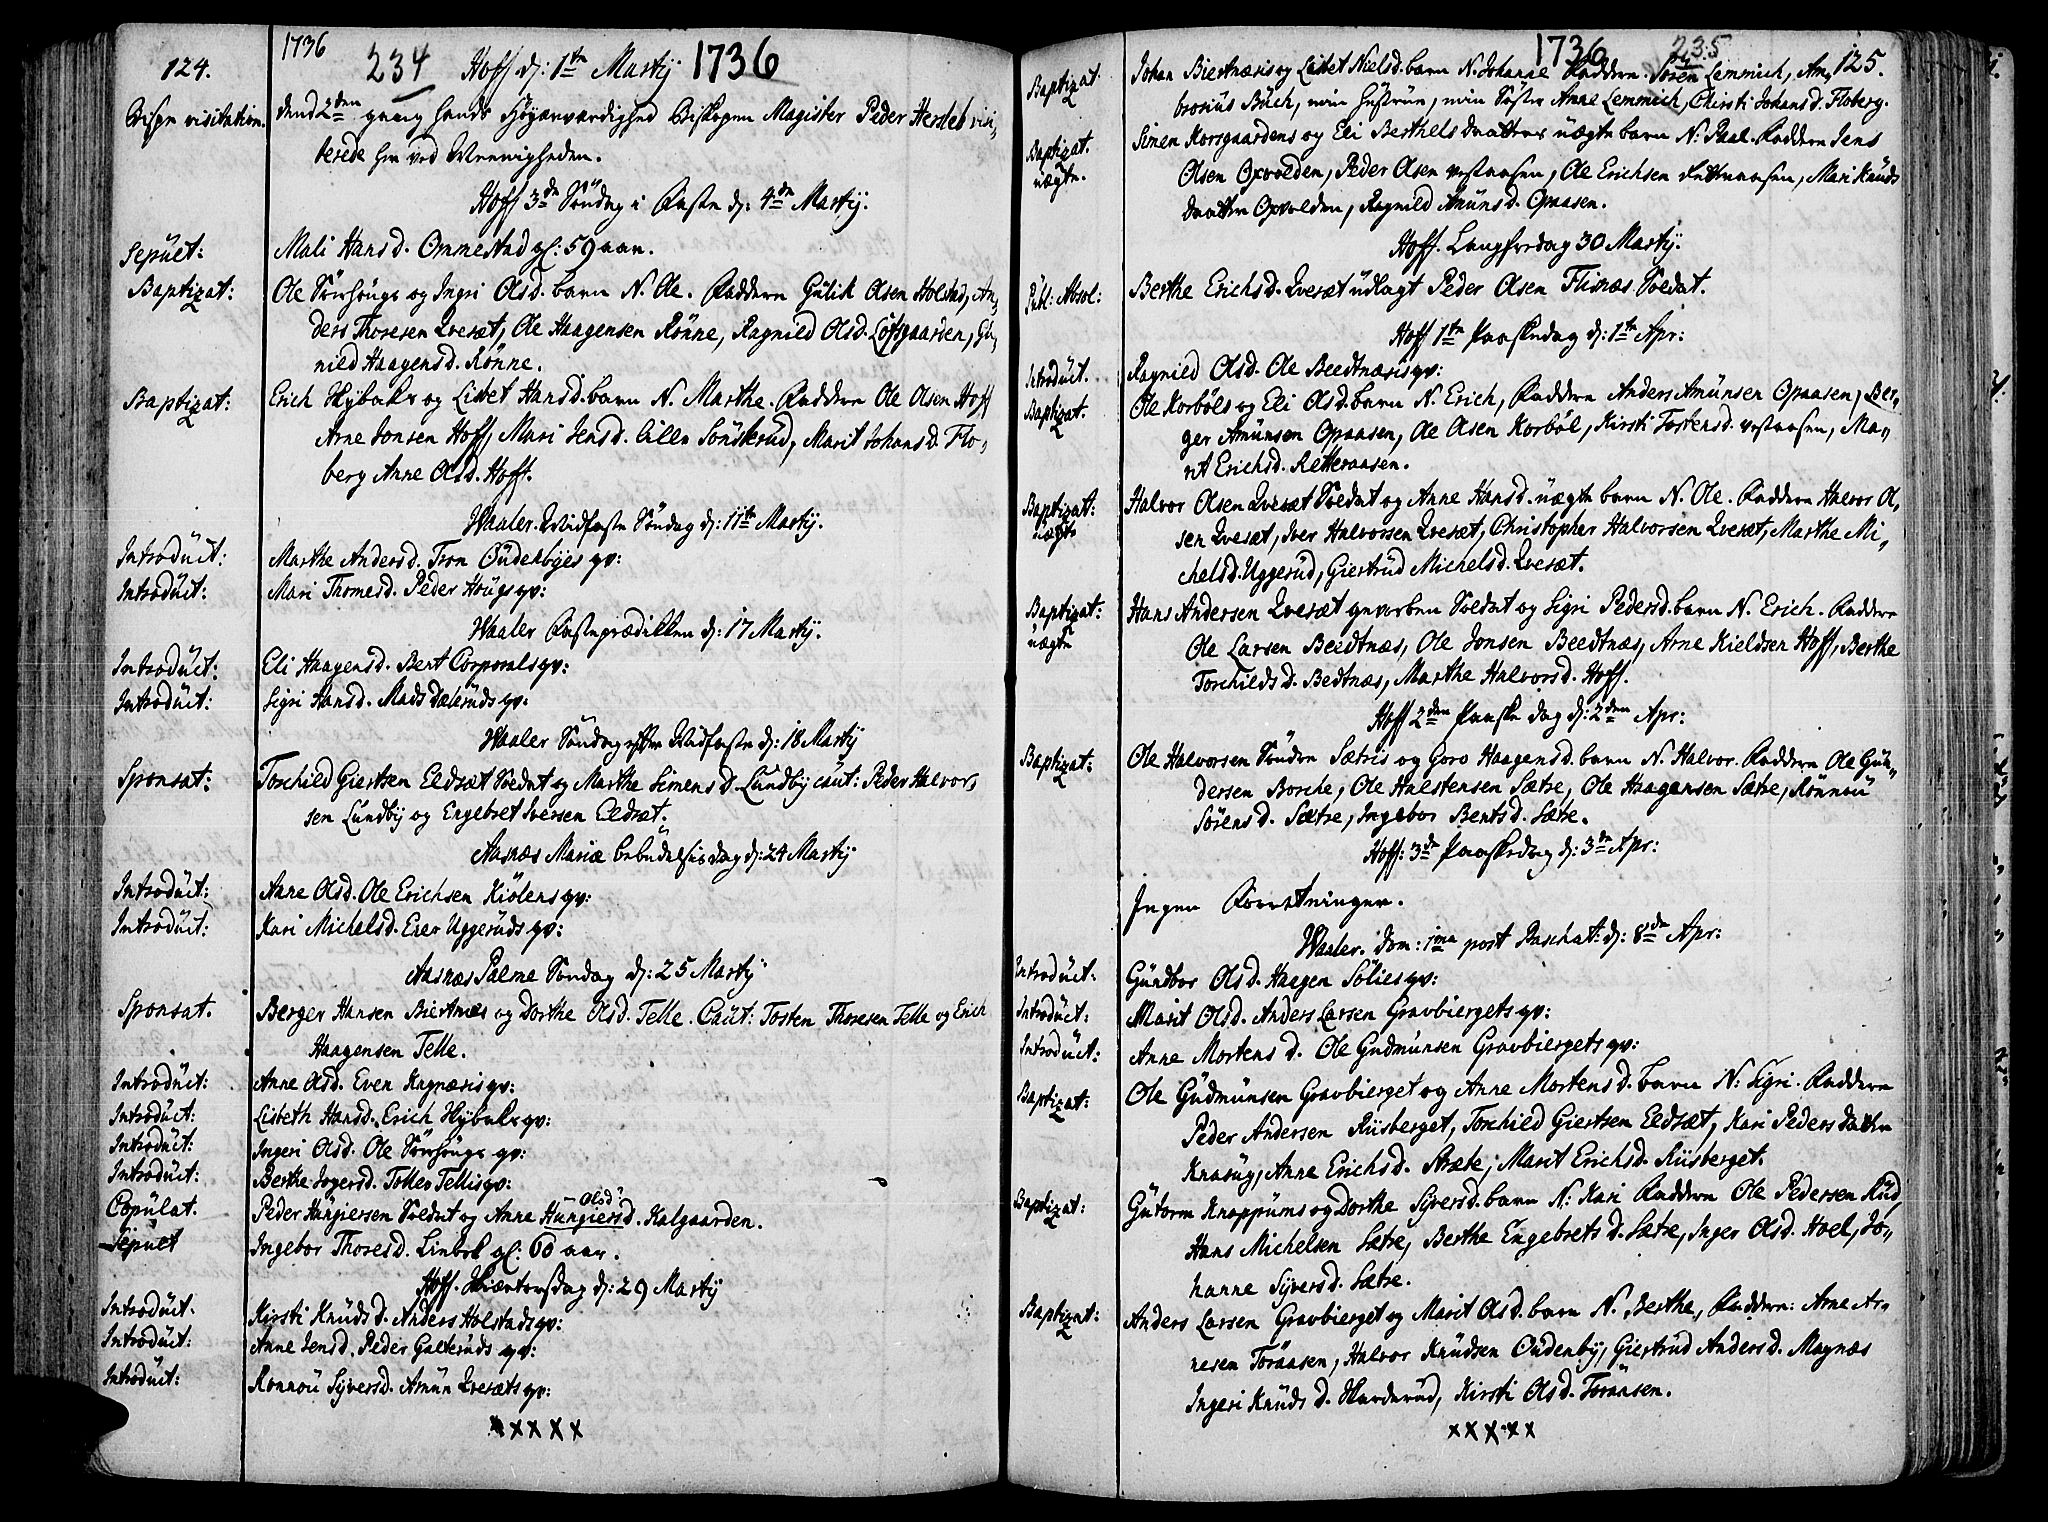 124.
1736
234
Hoff d: 1te Martij 1736
Bispe visitation.
dend 2den gang hands Höyærværdighed Biskopen Magister Peder Hersleb visi,
terede her ved Menigheden.
Hoff 3de Söndag i Faste d: 4de Martij.
Sepult:
Mali Hansd. Ommestad gl: 59 aar.
Baptizat:
Ole Sörhougs og Ingri Olsd. barn N. Ole. Faddere Gulik Olsen Holstad, An,
ders Thoresen Qvesæt, Ole Haagensen Rönne, Ragnild Olsd. Lofsgaarden, Gu,
nild Haagensd. Rönne.
Baptizat:
Erich Hÿbakr og Lisbet Hansd. barn N. Marthe. Faddere Ole Olsen Hoff
Arne Jonsen Hoff, Mari Jensd. Lille Sönskrud, Marit Johansd. Flo,
berg Anne Olsd. Hoff.
Waaler. Midfaste Söndag d: 11te Martij.
Introduct:
Marthe Andersd. Tron Oudenbÿes qv:
Introduct:
Mari Thomesd. Peder Hougs qv:
Waaler Fasteprædiken d: 17 Martij.
Introduct:
Eli Haagensd. Bert Corporals qv:
Introduct:
Sigri Hansd. Mads Dæleruds qv.
Waaler Söndag efter Midfaste d: 18 Martij
Sponsat:
Torchild Giertsen Eldsæt Soldat og Marthe Simensd. Lundby caut: Peder Halvor,
sen Lundbÿ og Engebret Iversen Eldsæt.
Aasnæs Mariæ bebudelsis dag d: 24 Martij
Introduct:
Anne Olsd. Ole Erichsen Kiölens qv:
Introduct:
Kari Michelsd. Ener Uggeruds qv:
Aasnæs Palme Söndag d: 25 Martij
Sponsat.
Berger Hansen Biertnæs og Dorthe Olsd. Telle. Caut: Tosten Thoresen Telle og Erich
Haagensen Telle.
Introduct:
Anne Olsd. Even Kagnæsis qv:
Introduct:
Lisbeth Hansd. Erich Hÿbakr qv:
Introduct:
Ingeri Olsd. Ole Sörhougs qv:
Introduct:
Berthe Jogersd. Tollev Tellis qv:
Copulat.
Olsd
Peder Hungiersen Soldat og Anne Hungiersd. Kalgaarden.
Sepult
Ingebor Thoresd. Linbek gl. 60 aar.
Hoff. Skiærtorsdag d: 29 Martij
Introduct.
Kirsti Knudsd. Anders Holstads qv:
Introduct:
Anne Jensd. Peder Galteruds qv:
Introduct:
Ronnou Sÿversd. Amun Qvesæts qv:
x x x x x
1736
235
125.
Baptizat
Johan Biertnæsis og Lisbet Nielsd. barn N. Johanne Faddere. Sören Lemmich, Am,
brosius Büch, min Hustrue, min Söster Anne Lemmich, Chirsti Johansd. Floberg.
Baptizat.
uægte.
Simen Korsgaardens og Eli Berthelsdaatters uægte barn N: Paal. Faddere Jens
Olsen Opvolden, Peder Olsen vestaasen, Ole Erichsen Retteraasen, Mari Knuds
daatter Opvolden, Ragnild Amunsd. Opaasen.
Hoff. Langfredag 30 Martij.
Publ: Absol:
Berthe Erichsd. Qvesæt udlagt Peder Olsen Flisnæs Soldat.
Hoff 1te Paaskedag d: 1te Apr:
Introduct.
Ragnild Olsd. Ole Beedtnæsis qv:
Baptizat.
Ole Korböls og Eli Olsd. barn N. Erich, Faddere Anders Amunsen Opaasen, Ber,
ger Amunsen Opaasen, Ole Olsen Korböl, Kirsti Tostensd. vestaasen, Ma,
rit Erichsd. Retteraasen.
Baptizat:
uægte
Halvor Olsen Qvesæt Soldat og Anne Hansd. uægte barn N. Ole. Faddere Halvor Ol,
sen Qvesæt, Iver Halvorsen Qvesæt, Christopher Halvorsen Qvesæt, Marthe Mi,
chelsd. Uggerud, Giertrud Michelsd. Qvesæt.
Baptizat:
uægte
Hans Andersen Qvesæt gevorben Soldat og Sigri Pedersd. barn N. Erich. Faddere
Ole Larsen Beedtnæs, Ole Jonsen Beedtnæs, Arne Kieldsen Hoff, Berthe
Torchildsd. Bedtnæs, Marthe Halvorsd. Hoff.
Hoff 2den Paaske dag d: 2den Apr:
Baptizat:
Ole Halvorsen Sönden Sætris og Goro Haagensd. barn N. Halvor. Faddere Ole Gun,
dersen Borche, Ole Halstensen Sætre, Ole Haagensen Sætre, Rönnou
Sörensd. Sætre, Ingebor Bentsd. Sætre.
Hoff: 3de Paaskedag d: 3de Apr:
Ingen Forretninger.
Waaler. Dom: 1ma post Paschat: d: 8de Apr:
Introduct.
Gundbor Olsd. Haagen Sölies qv:
Introduct:
Marit Olsd. Anders Larsen Gravbiergets qv:
Introduct:
Anne Mortensd. Ole Gudmunsen Gravbiergets qv:
Baptizat:
Ole Gudmunsen Gravbierget og Anne Mortensd. barn N: Sigri. Faddere
Peder Andersen Riisberget, Torchild Giertsen Eldsæt, Kari Pedersdatter
Knasug, Anne Erichsd. Stræte, Marit Erichsd. Riisberget.
Baptizat:
Gutorm Knappums og Dorthe Sÿversd. barn N: Kari Faddere Ole Pedersen Rud,
Hans Michelsen Sætre, Berthe Engebretsd. Sætre, Inger Olsd. Hoel, Jo,
hanne Sÿversd. Sætre.
Baptizat:
Anders Larsen Gravbierget og Marit Olsd. barn N. Berthe, Faddere: Arne Ar,
nesen Toraasen, Halvor Knudsen Oudenbÿ, Giertrud Andersd. Magnæs
Ingeri Knudsd. Harderud, Kirsti Olsd. Toraasen.
x x x x x